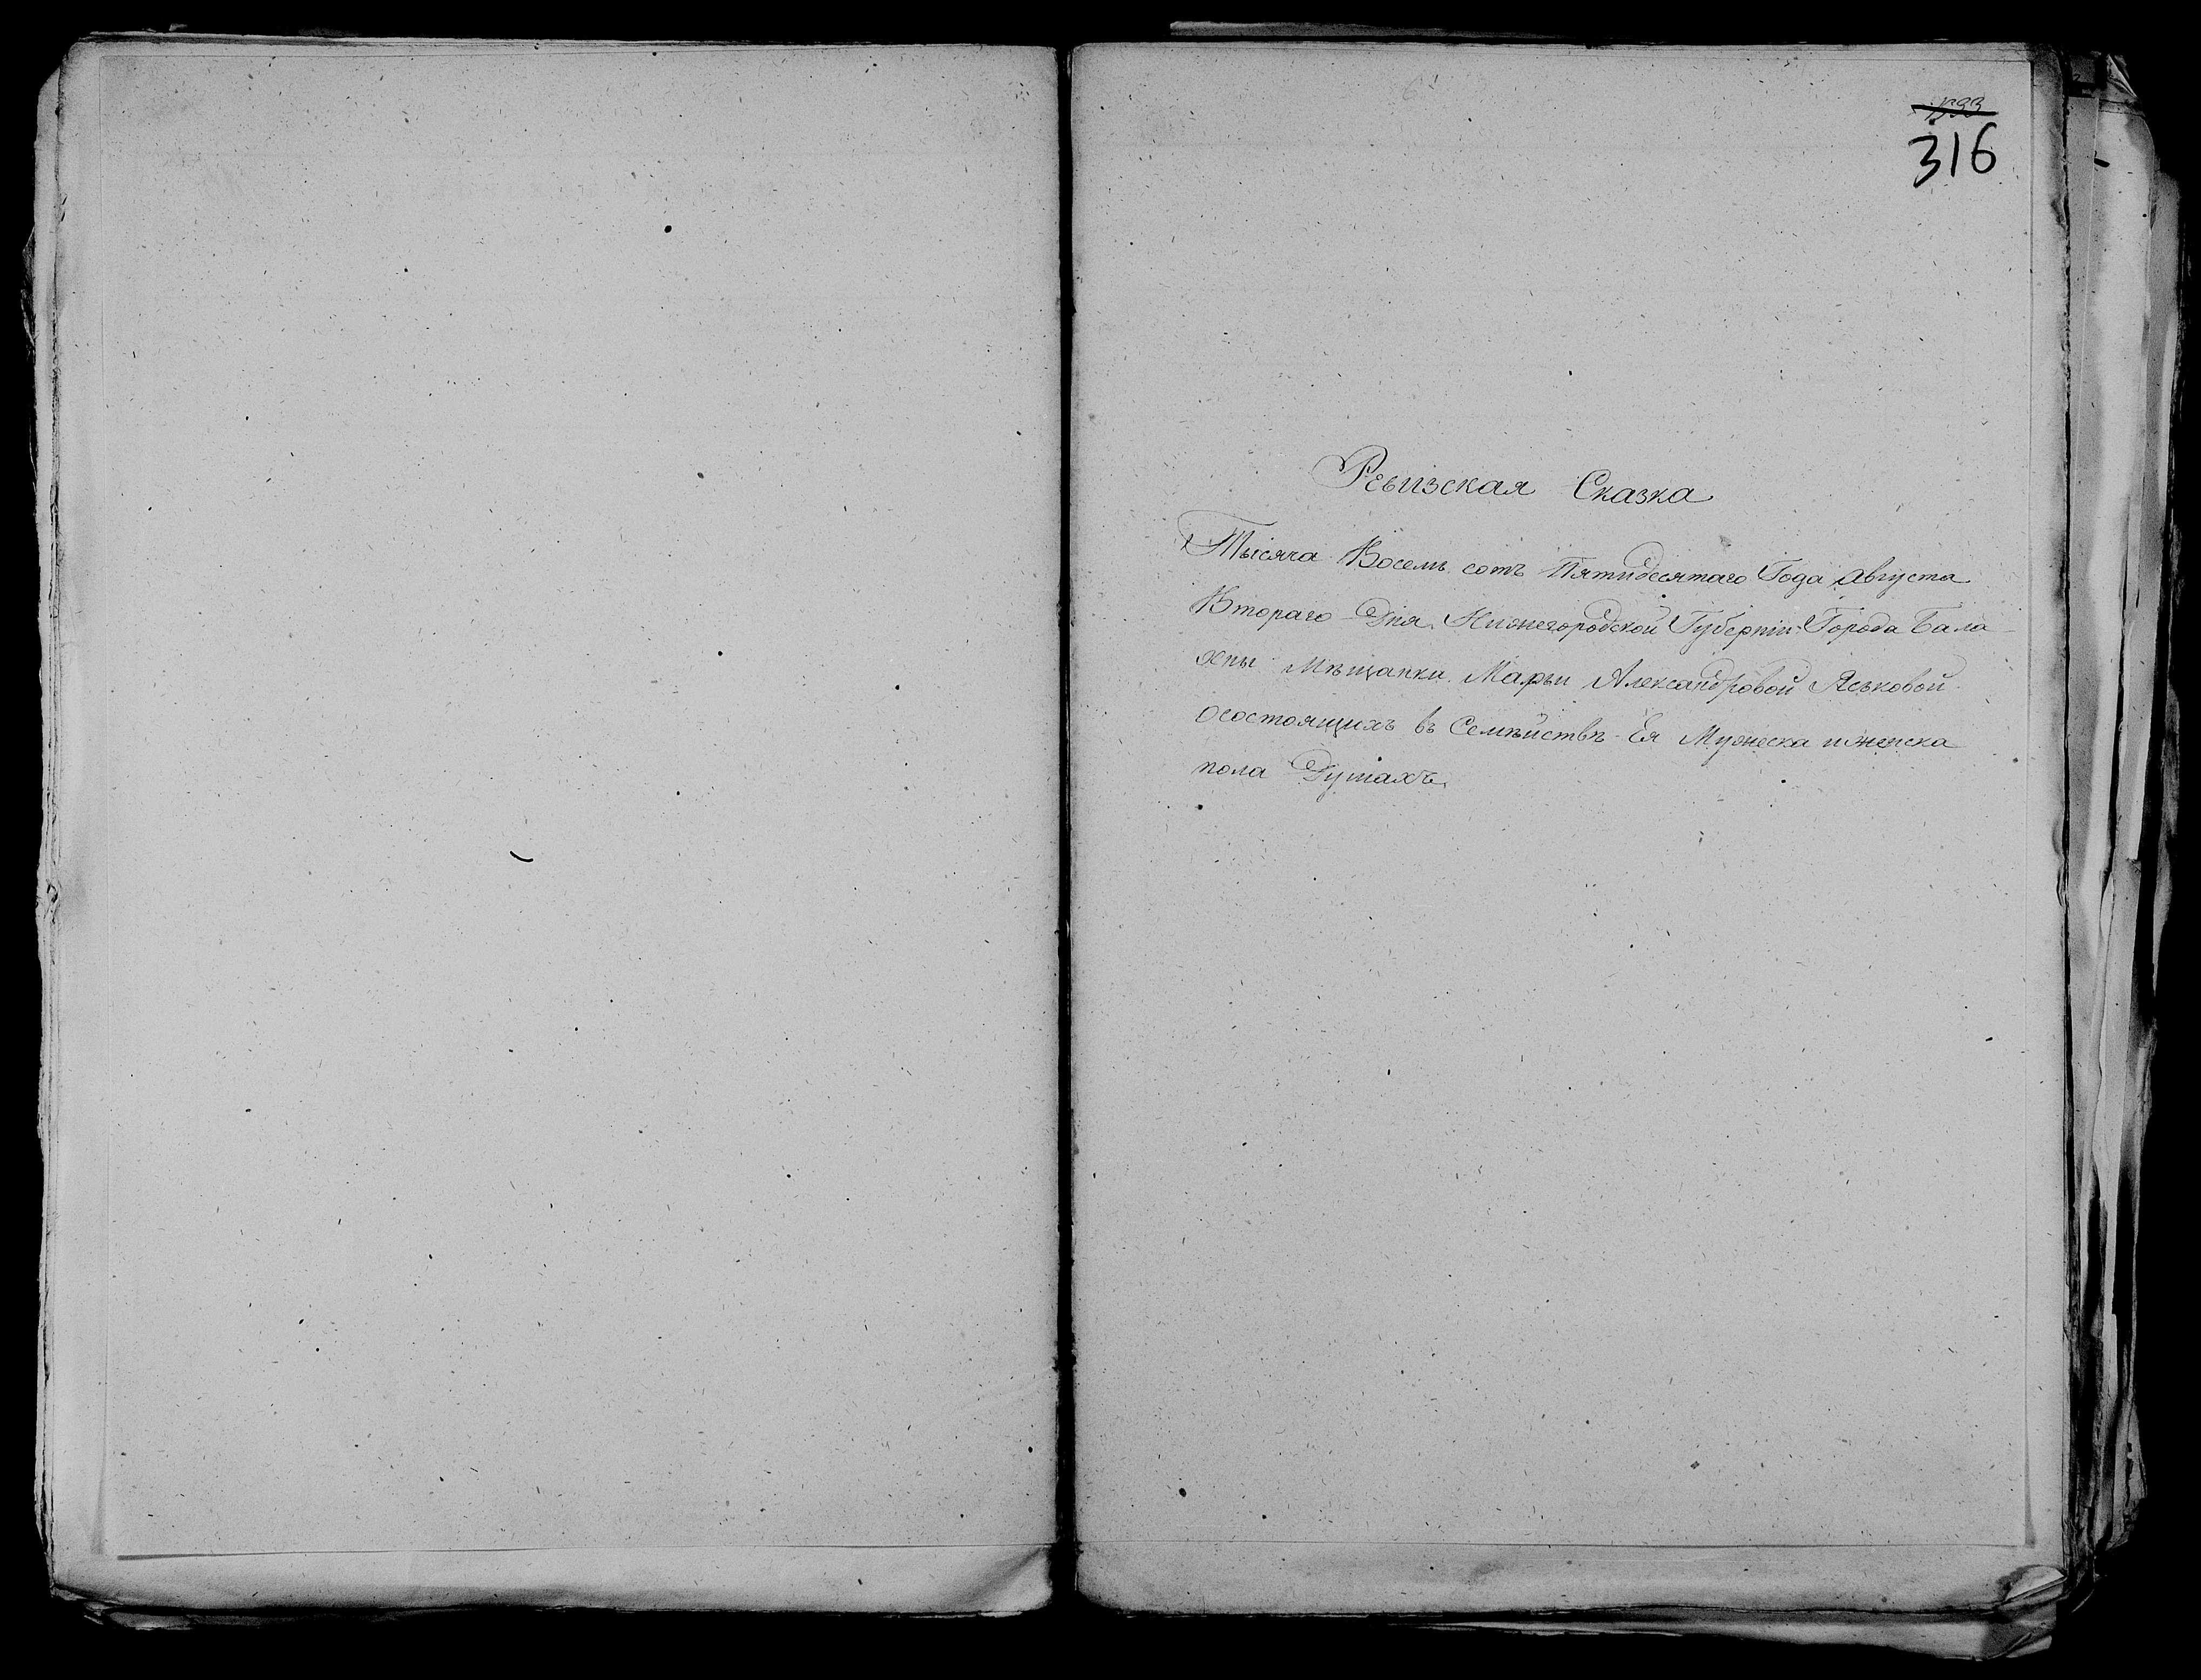 316
Ревизская Сказка
Тысяча Восемь сотъ Пятидесятаго Года Августа
Втораго Дня Нижегородской Губерніи Города Бала
хны Мѣщанки Марьи Александровой Яськовой
осостоящихъ въ Семѣйствѣ Ея Мужеска иженска
пола Душахъ